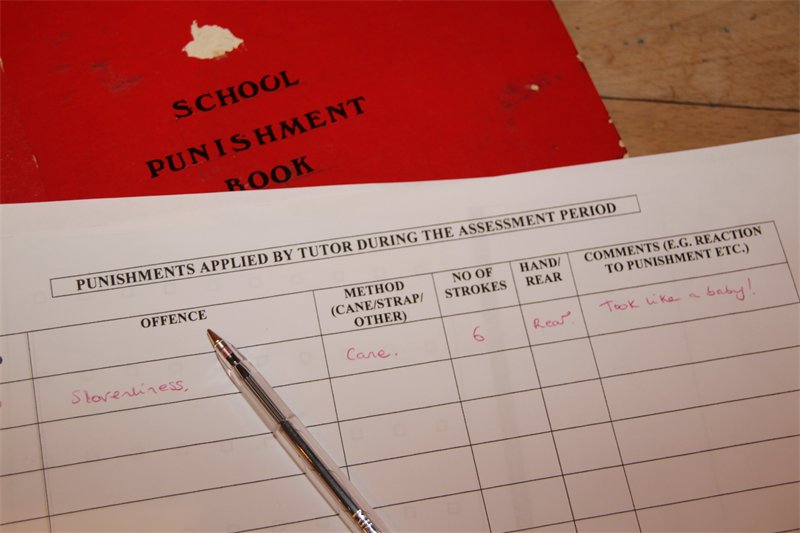 SCHOOL
PUNISHMENT
BOOK
PUNISHMENTS APPLIED BY TUTOR DURING THE ASSESSMENT PERIOD
OFFENCE
METHOD
(CANE/STRAP/
OTHER)
NO OF
STROKES
HAND/
REAR
COMMENTS (E.G. REACTION
TO PUNISHMENT ETC.)
Slovenliness.
Cane.
6
Rear.
Took like a baby!